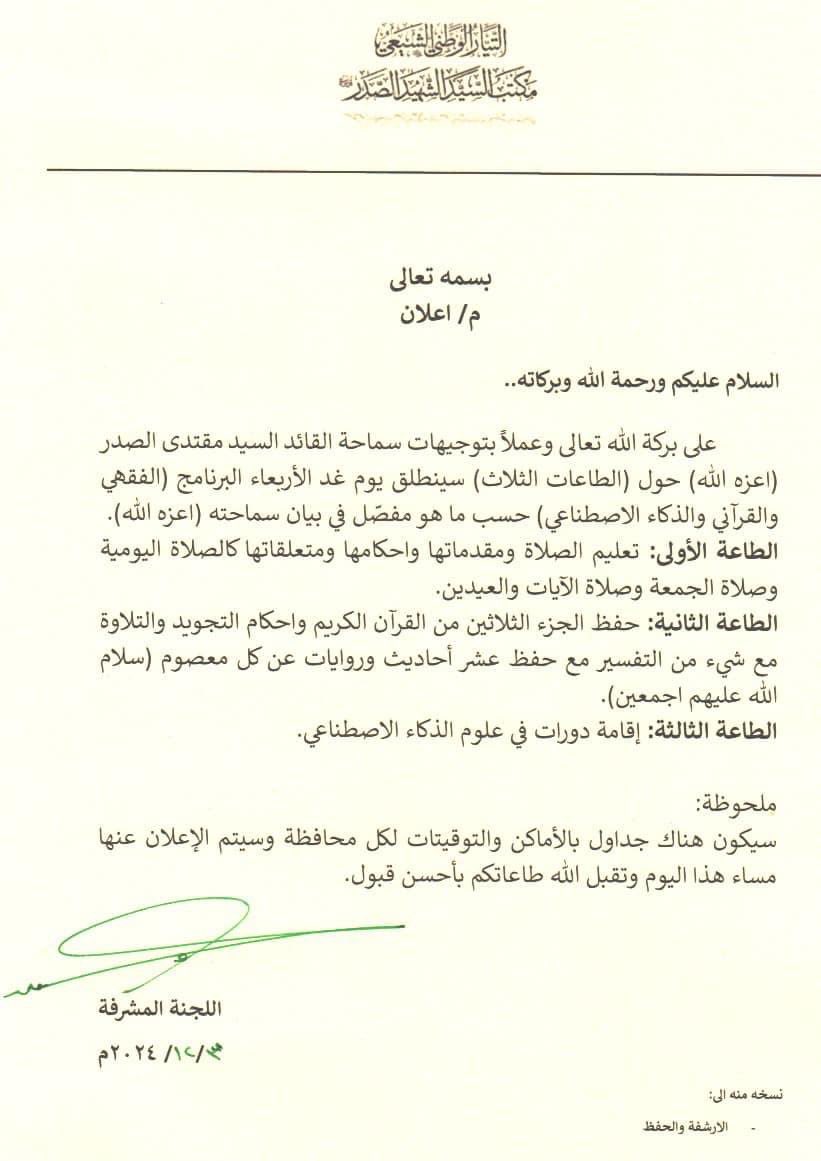 التيار الوطني الشيعي
مكتب السيد الشهيد الصدر
بسمه تعالى
م/ اعلان
السلام عليكم ورحمة الله وبركاته..
على بركة الله تعالى وعملاً بتوجيهات سماحة القائد السيد مقتدى الصدر
(اعزه الله) حول (الطاعات الثلاث) سينطلق يوم غد الأربعاء البرنامج (الفقهي
والقرآني والذكاء الاصطناعي) حسب ما هو مفصّل في بيان سماحته (اعزه الله).
الطاعة الأولى: تعليم الصلاة ومقدماتها واحكامها ومتعلقاتها كالصلاة اليومية
وصلاة الجمعة وصلاة الآيات والعيدين.
الطاعة الثانية: حفظ الجزء الثلاثين من القرآن الكريم واحكام التجويد والتلاوة
مع شيء من التفسير مع حفظ عشر أحاديث وروايات عن كل معصوم (سلام
الله عليهم اجمعين).
الطاعة الثالثة: إقامة دورات في علوم الذكاء الاصطناعي.
ملحوظة:
سيكون هناك جداول بالأماكن والتوقيتات لكل محافظة وسيتم الإعلان عنها
مساء هذا اليوم وتقبل الله طاعاتكم بأحسن قبول.
اللجنة المشرفة
٣/١٢/ ٢٠٢٤م
نسخه منه الى:
- الارشفة والحفظ